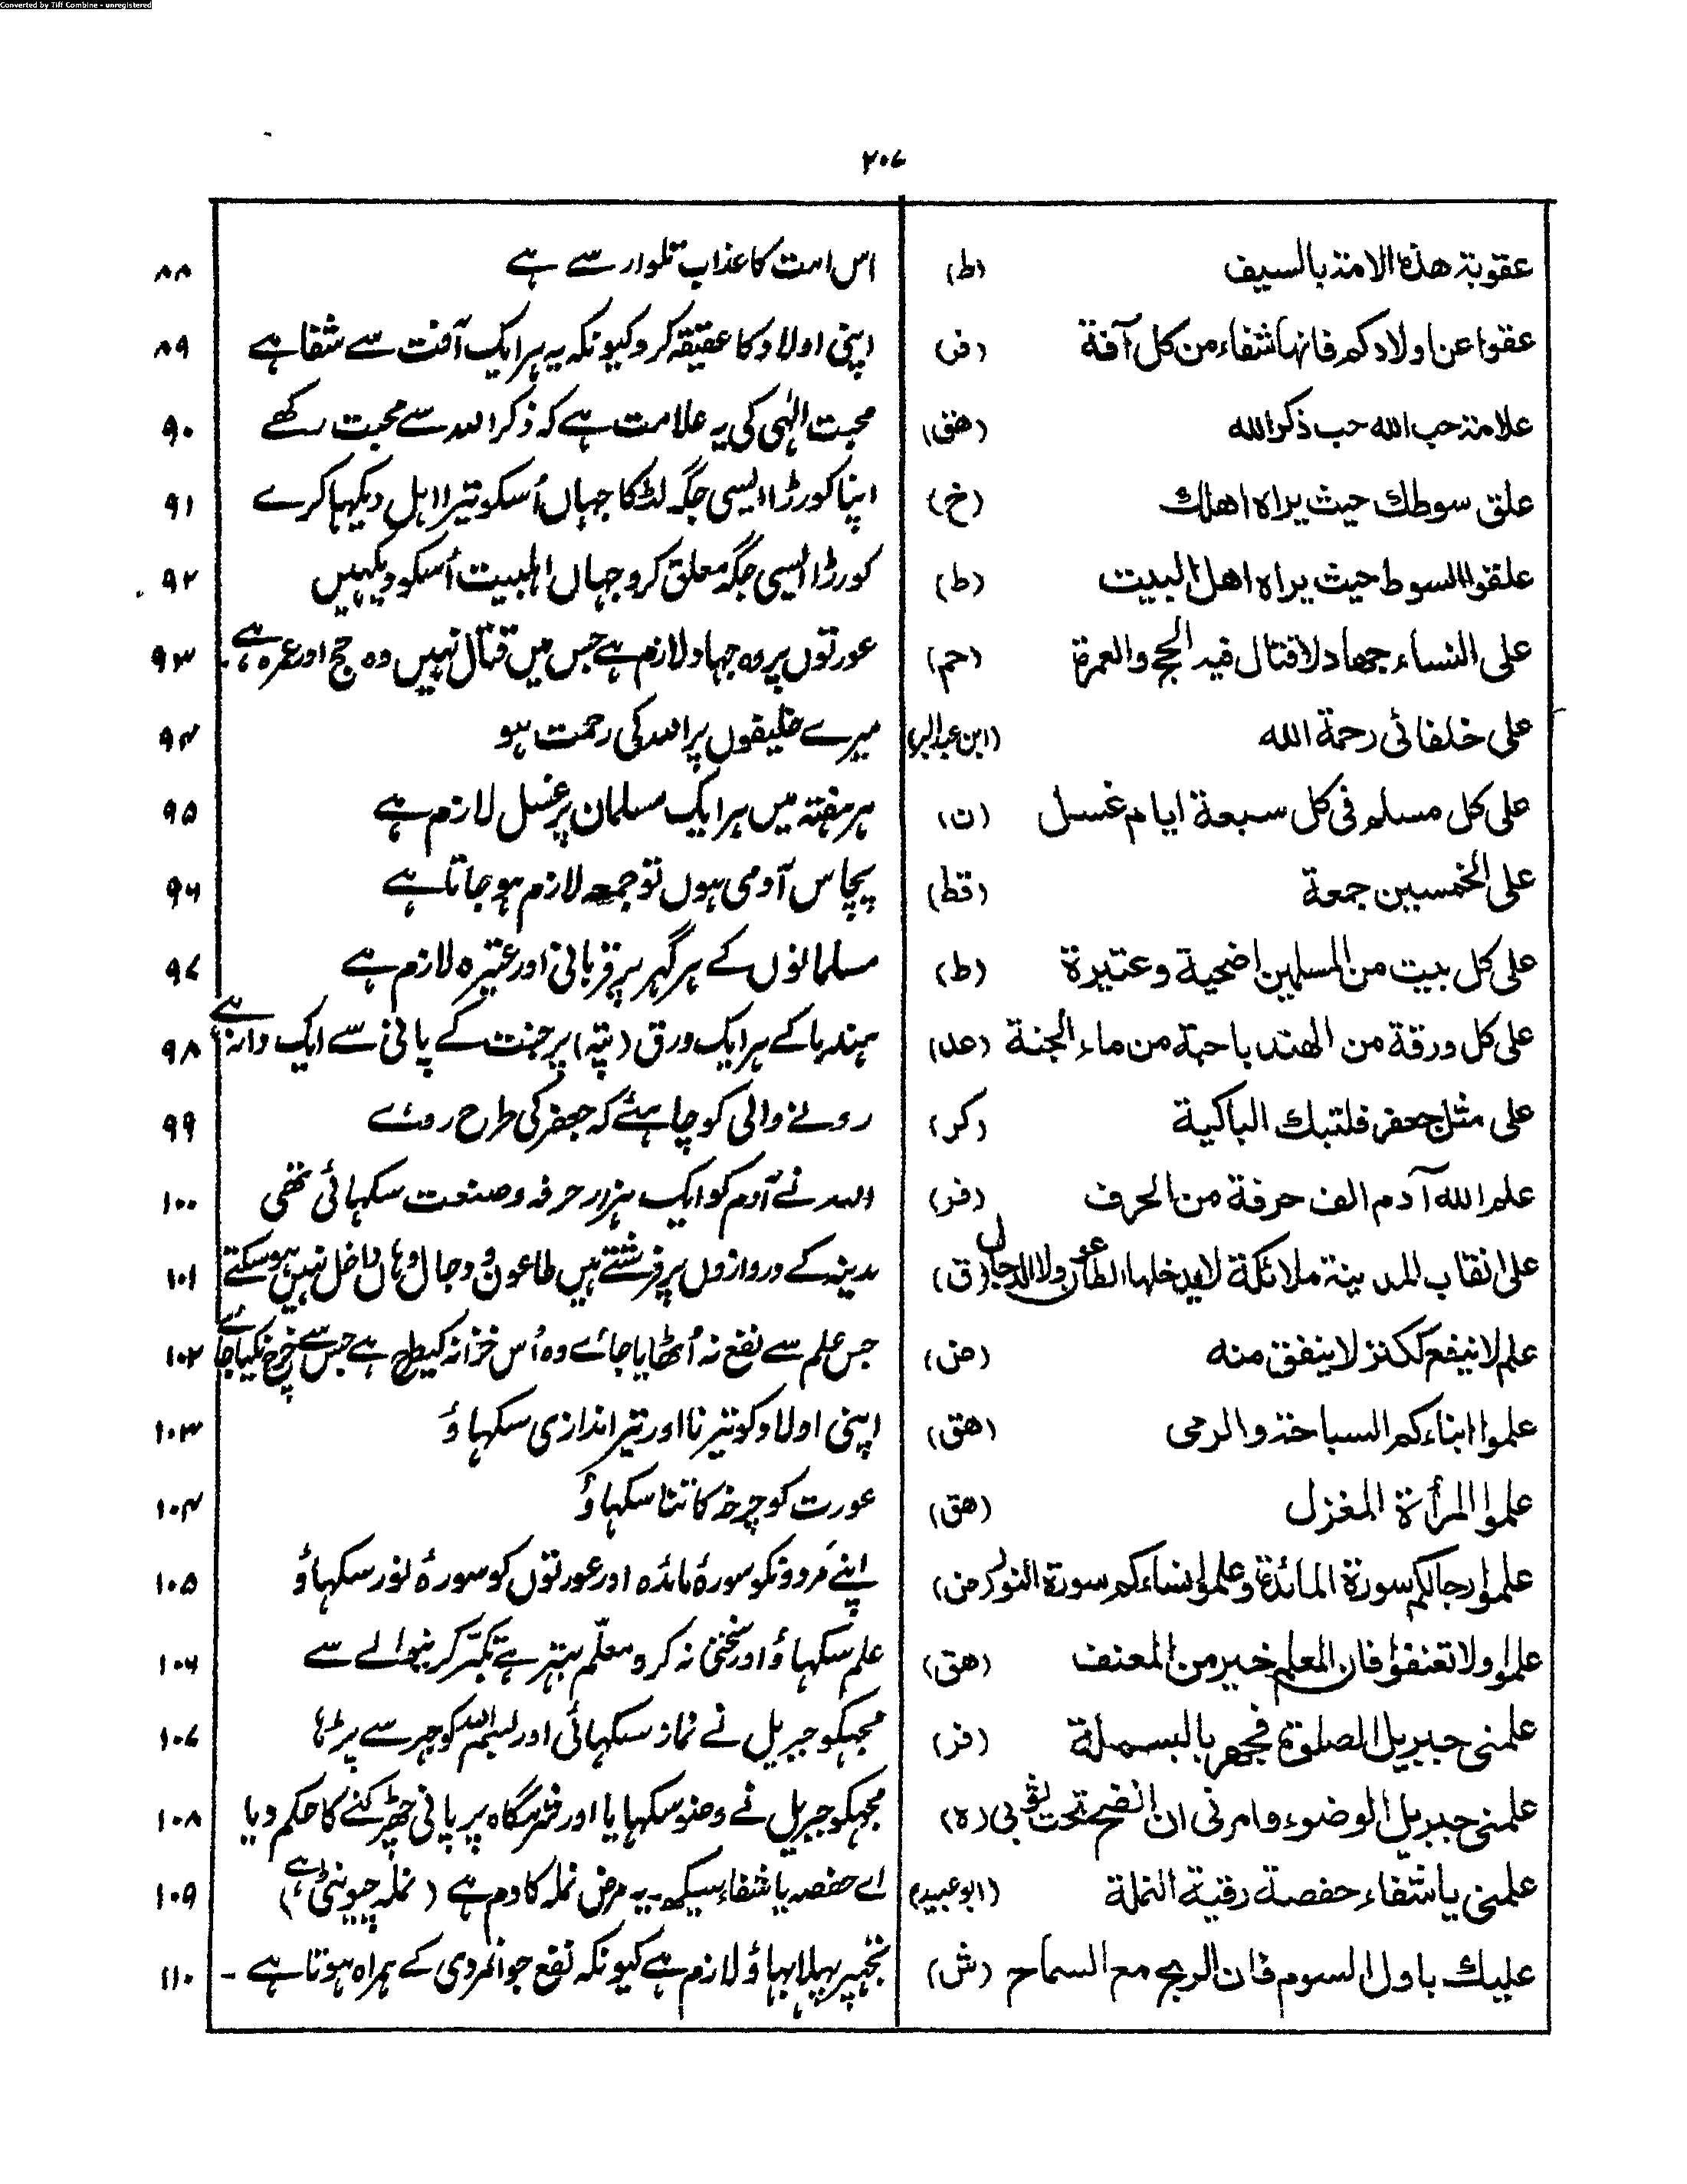 Converted by Tiff Combine - unregistered
۲۰۷
عقوبة هذه الامة بالسيف (ط) اس امت کا عذاب تلوار سے ہے ۸۸
عقوا عن اولادكم فانها شفاء من كل آفة (فر) اپنی اولاد کا عقیقہ کرو کیونکہ یہ ہر ایک آفت سے شفا ہے ۸۹
علامة حب الله حب ذكر الله (هق) محبت الٰہی کی یہ علامت ہے کہ ذکر اللہ سے محبت رکھے ۹۰
علق سوطك حيث يراه اهلك (خ) اپنا کورڑا ایسی جگہ لٹکا جہاں اُسکو تیرا اہل دیکہا کرے ۹۱
علقوا السوط حيث يراه اهل البيت (ط) کورڑا ایسی جگہ معلق کرو جہاں اہلبیت اُسکو دیکہیں ۹۲
على النساء جهاد لا قتال فيه الحج والعمرة (حم) عورتوں پر وہ جہاد لازم ہے جس میں قتال نہیں وہ حج اور عمرہ ہے۔ ۹۳
على خلفائى رحمة الله (ابن عبدالبر) میرے خلیفوں پر اللہ کی رحمت ہو ۹۴
على كل مسلم فى كل سبعة ايام غسل (ن) ہر ہفتہ میں ہر ایک مسلمان پر غسل لازم ہے ۹۵
على الخمسين جمعة (قط) پچاس آدمی ہوں تو جمعہ لازم ہو جاتا ہے ۹۶
على كل بيت من المسلمين اضحية وعتيرة (ط) مسلمانوں کے ہر گہر پر قربانی اور عتیرہ لازم ہے ۹۷
على كل ورقة من الهندبا حبة من ماء الجنة (عد) ہندبا کے ہر ایک ورق (پتہ) پر جنت کے پانی سے ایک دانہ ہے ۹۸
على مثل جعفر فلتبك الباكية (كر) رونے والی کو چاہئے کہ جعفر کی طرح روئے ۹۹
علم الله آدم الف حرفة من الحرف (فر) اللہ نے آدم کو ایک ہزار حرفہ و صنعت سکہائی تھی ۱۰۰
على انقاب المدينة ملائكة لا يدخلها الطاعون ولا الدجال (ق) مدینہ کے دروازوں پر فرشتے ہیں طاعون و دجال وہاں داخل نہیں ہو سکتے ۱۰۱
علم لا ينفع ككنز لا ينفق منه (ض) جس علم سے نفع نہ اُٹھایا جائے وہ اُس خزانہ کیطرح ہے جس سے خرچ نکیا جائے ۱۰۲
علموا ابناءكم السباحة والرمى (هق) اپنی اولاد کو تیرنا اور تیر اندازی سکہاؤ ۱۰۳
علموا المرأة المغزل (هق) عورت کو چرخہ کاتنا سکہاؤ ۱۰۴
علموا رجالكم سورة المائدة وعلموا نساءكم سورة النور (ض) اپنے مَردونکو سورۂ مائدہ اور عورتوں کو سورۂ نور سکہاؤ ۱۰۵
علموا ولا تعنفوا فان المعلم خير من المعنف (هق) علم سکہاؤ اور سختی نہ کرو معلّم بہتر ہے تکبّر کرنیوالے سے ۱۰۶
علمنى جبريل الصلوة فجهر بالبسملة (فر) مجہکو جبریل نے نماز سکہائی اور بسم اللہ کو جہر سے پڑہا ۱۰۷
علمنى جبريل الوضوء وامرنى ان انضح تحت ثوبى (ه) مجہکو جبریل نے وضو سکہایا اور شرمگاہ پر پانی چھڑکنے کا حکم دیا ۱۰۸
علمنى يا شفاء حفصة رقية النملة (ابو عبيد) اے حفصہ یا شفاء سیکھ۔ یہ مرض نملہ کا دم ہے (نملہ چیونٹی ہے) ۱۰۹
عليك باول السوم فان الربح مع السماح (ش) تجہپر پہلا بہاؤ لازم ہے کیونکہ نفع جوانمردی کے ہمراہ ہوتا ہے - ۱۱۰